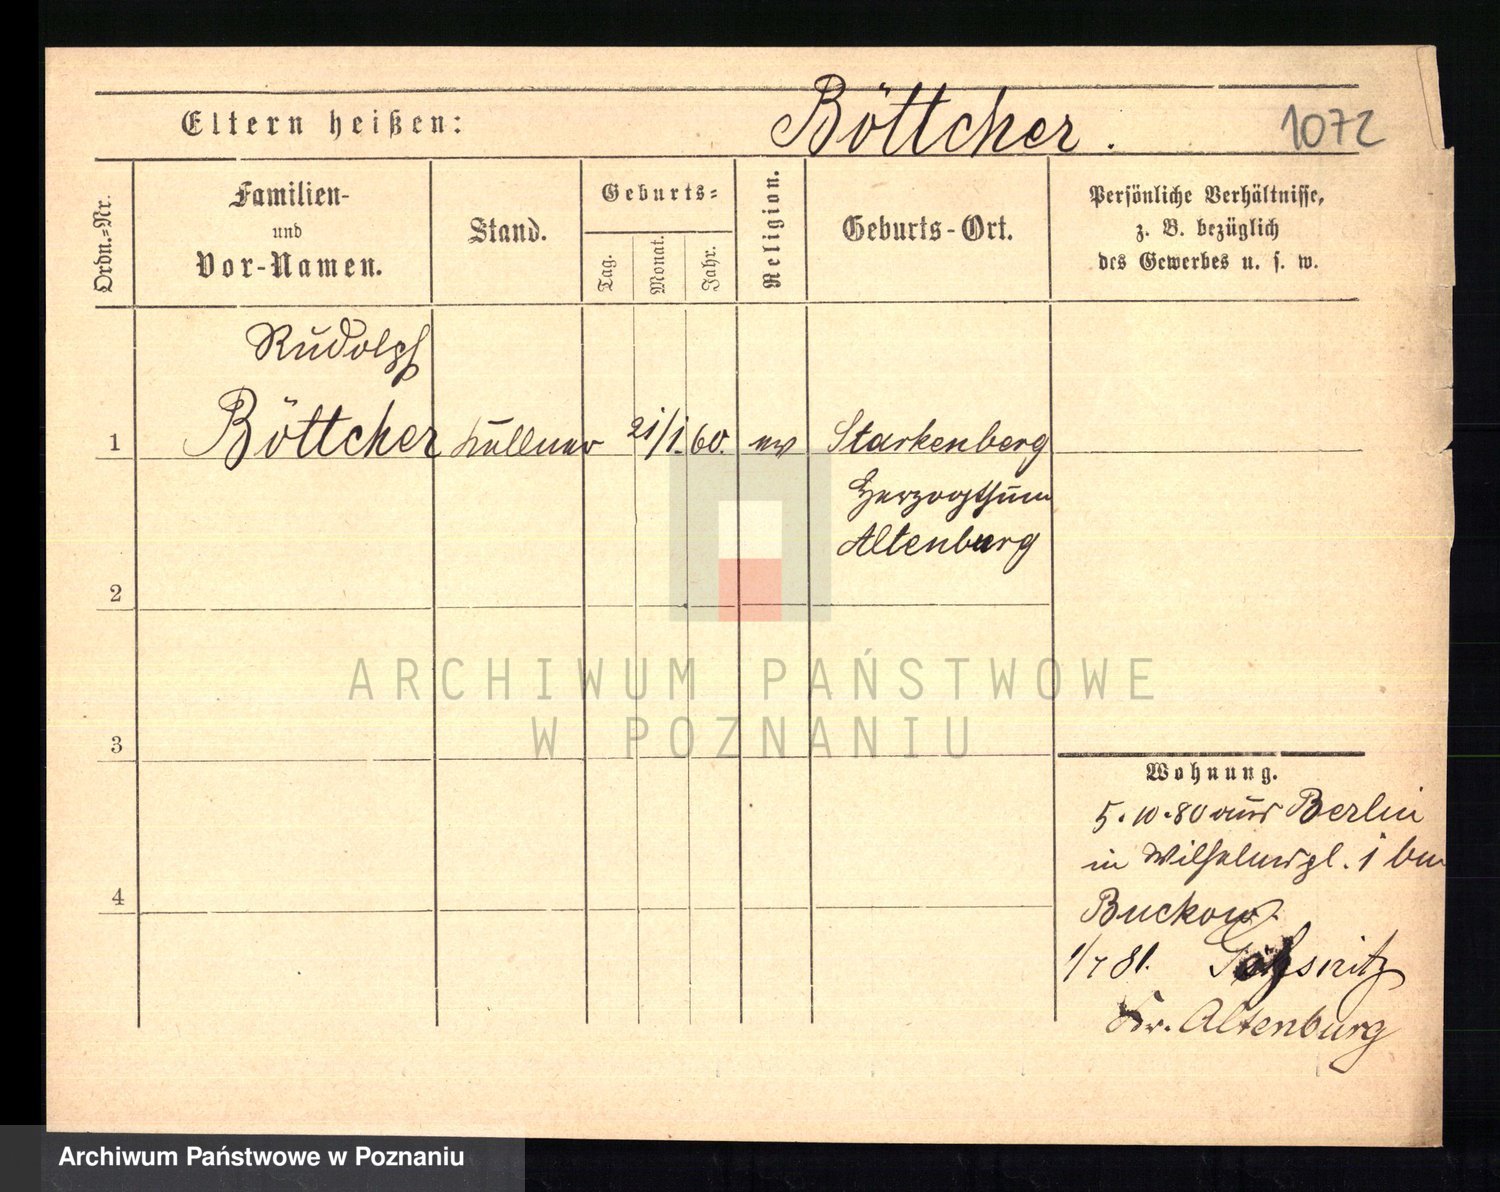 Eltern heißen:
Böttcher.
1072
Ordn.=Nr.
Familien-
und
Vor-Namen.
Stand.
Geburts=
Tag.
Monat.
Jahr.
Religion.
Geburts-Ort.
Persönliche Verhältnisse,
z. B. bezüglich
des Gewerbes u. s. w.
Rudolph
1 Böttcher Kellner 21/1. 60. ev Starkenberg
Herzogthum
Altenburg
2
3
4
Wohnung.
5.10.80 aus Berlin
in Wilhelmspl. 1 bei
Buckow.
1/7 81. Gößnitz
Kr. Altenburg
ARCHIWUM PAŃSTWOWE
W POZNANIU
Archiwum Państwowe w Poznaniu